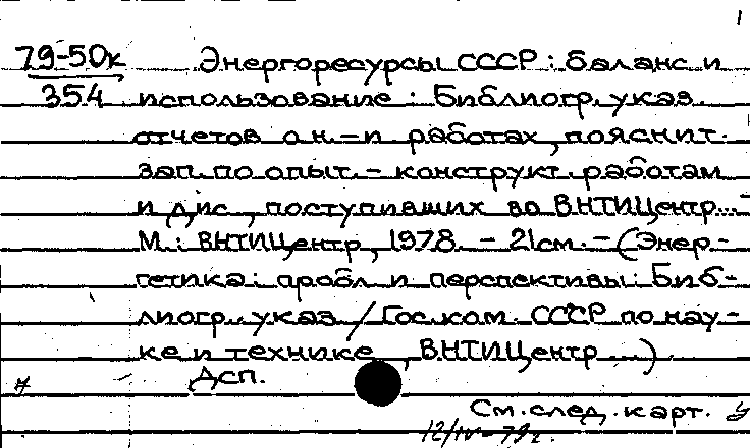 1
79-50к Энергоресурсы СССР: баланс и
354 использование: Библиогр. указ.
отчетов о н.-и работах, пояснит.
зап. по опыт.-конструкт. работам
и дис., поступивших во ВНТИЦентр...-
М.: ВНТИЦентр, 1978. - 21см. - (Энер-
гетика: пробл и перспективы: Биб-
лиогр. указ / Гос.ком. СССР по нау-
ке и технике, ВНТИЦентр...)
Дсп.
См. след. карт.
12/IV-79г.